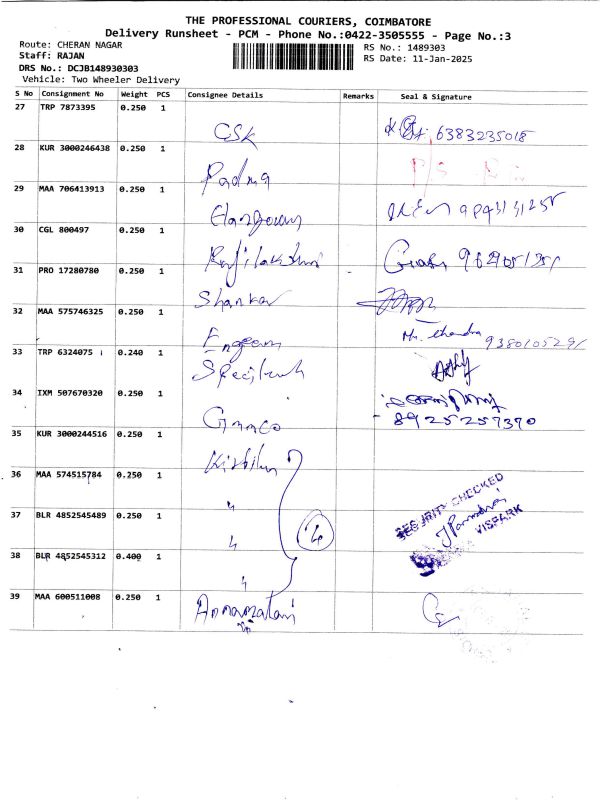 THE PROFESSIONAL COURIERS, COIMBATORE
Delivery Runsheet - PCM - Phone No.:0422-3505555 - Page No.:3
Route: CHERAN NAGAR
RS No.: 1489303
Staff: RAJAN
RS Date: 11-Jan-2025
DRS No.: DCJB148930303
Vehicle: Two Wheeler Delivery
S No Consignment No Weight PCS Consignee Details Remarks Seal & Signature
27 TRP 7873395 0.250 1 CSK 6383235018
28 KUR 3000246438 0.250 1 Padma
29 MAA 706413913 0.250 1
30 CGL 800497 0.250 1 Rajilakshmi
31 PRO 17280780 0.250 1 Shankar
32 MAA 575746325 0.250 1 Mr. Chandra 9380105291
33 TRP 6324075 0.240 1
34 IXM 507670320 0.250 1 8925257370
35 KUR 3000244516 0.250 1
36 MAA 574515784 0.250 1 "
37 BLR 4852545489 0.250 1 " 4 SECURITY CHECKED VISPARK
38 BLR 4852545312 0.400 1 "
39 MAA 600511008 0.250 1